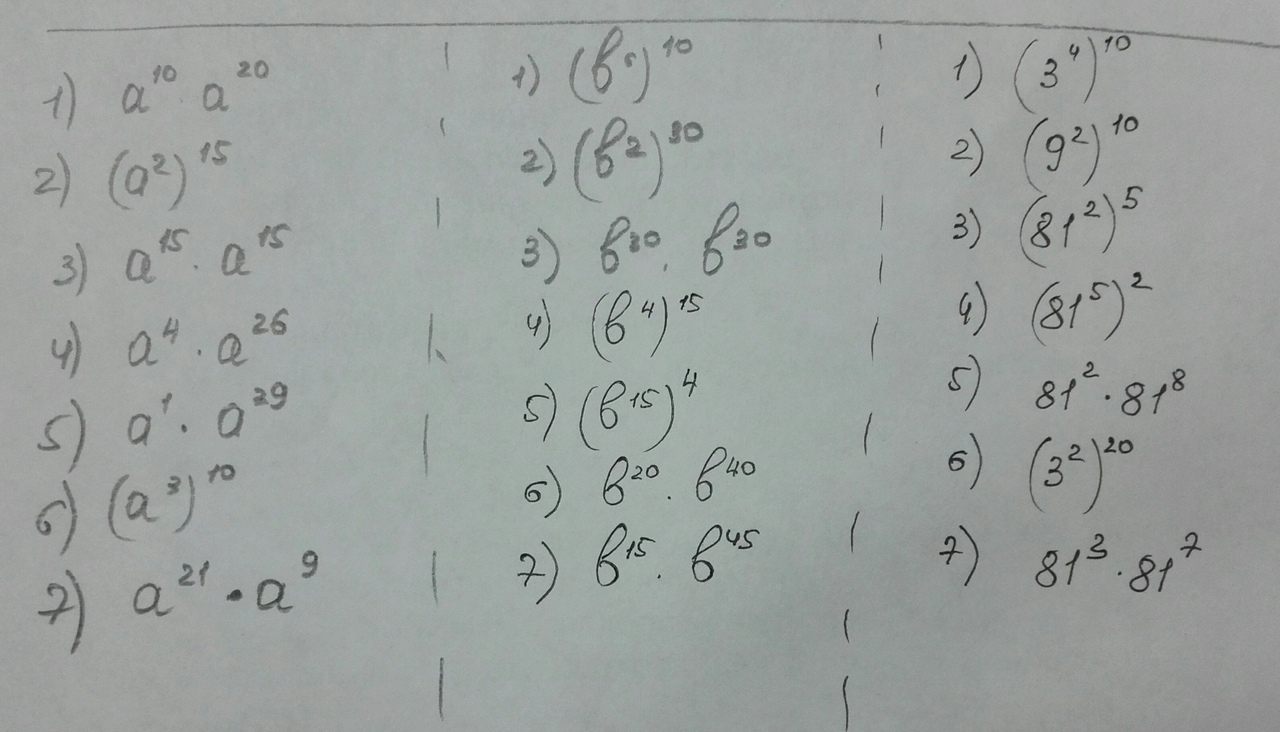 1) a¹⁰ · a²⁰
2) (a²)¹⁵
3) a¹⁵ · a¹⁵
4) a⁴ · a²⁶
5) a¹ · a²⁹
6) (a³)¹⁰
7) a²¹ · a⁹
1) (b⁶)¹⁰
2) (b²)³⁰
3) b³⁰ · b³⁰
4) (b⁴)¹⁵
5) (b¹⁵)⁴
6) b²⁰ · b⁴⁰
7) b¹⁵ · b⁴⁵
1) (3⁴)¹⁰
2) (9²)¹⁰
3) (81²)⁵
4) (81⁵)²
5) 81² · 81⁸
6) (3²)²⁰
7) 81³ · 81⁷